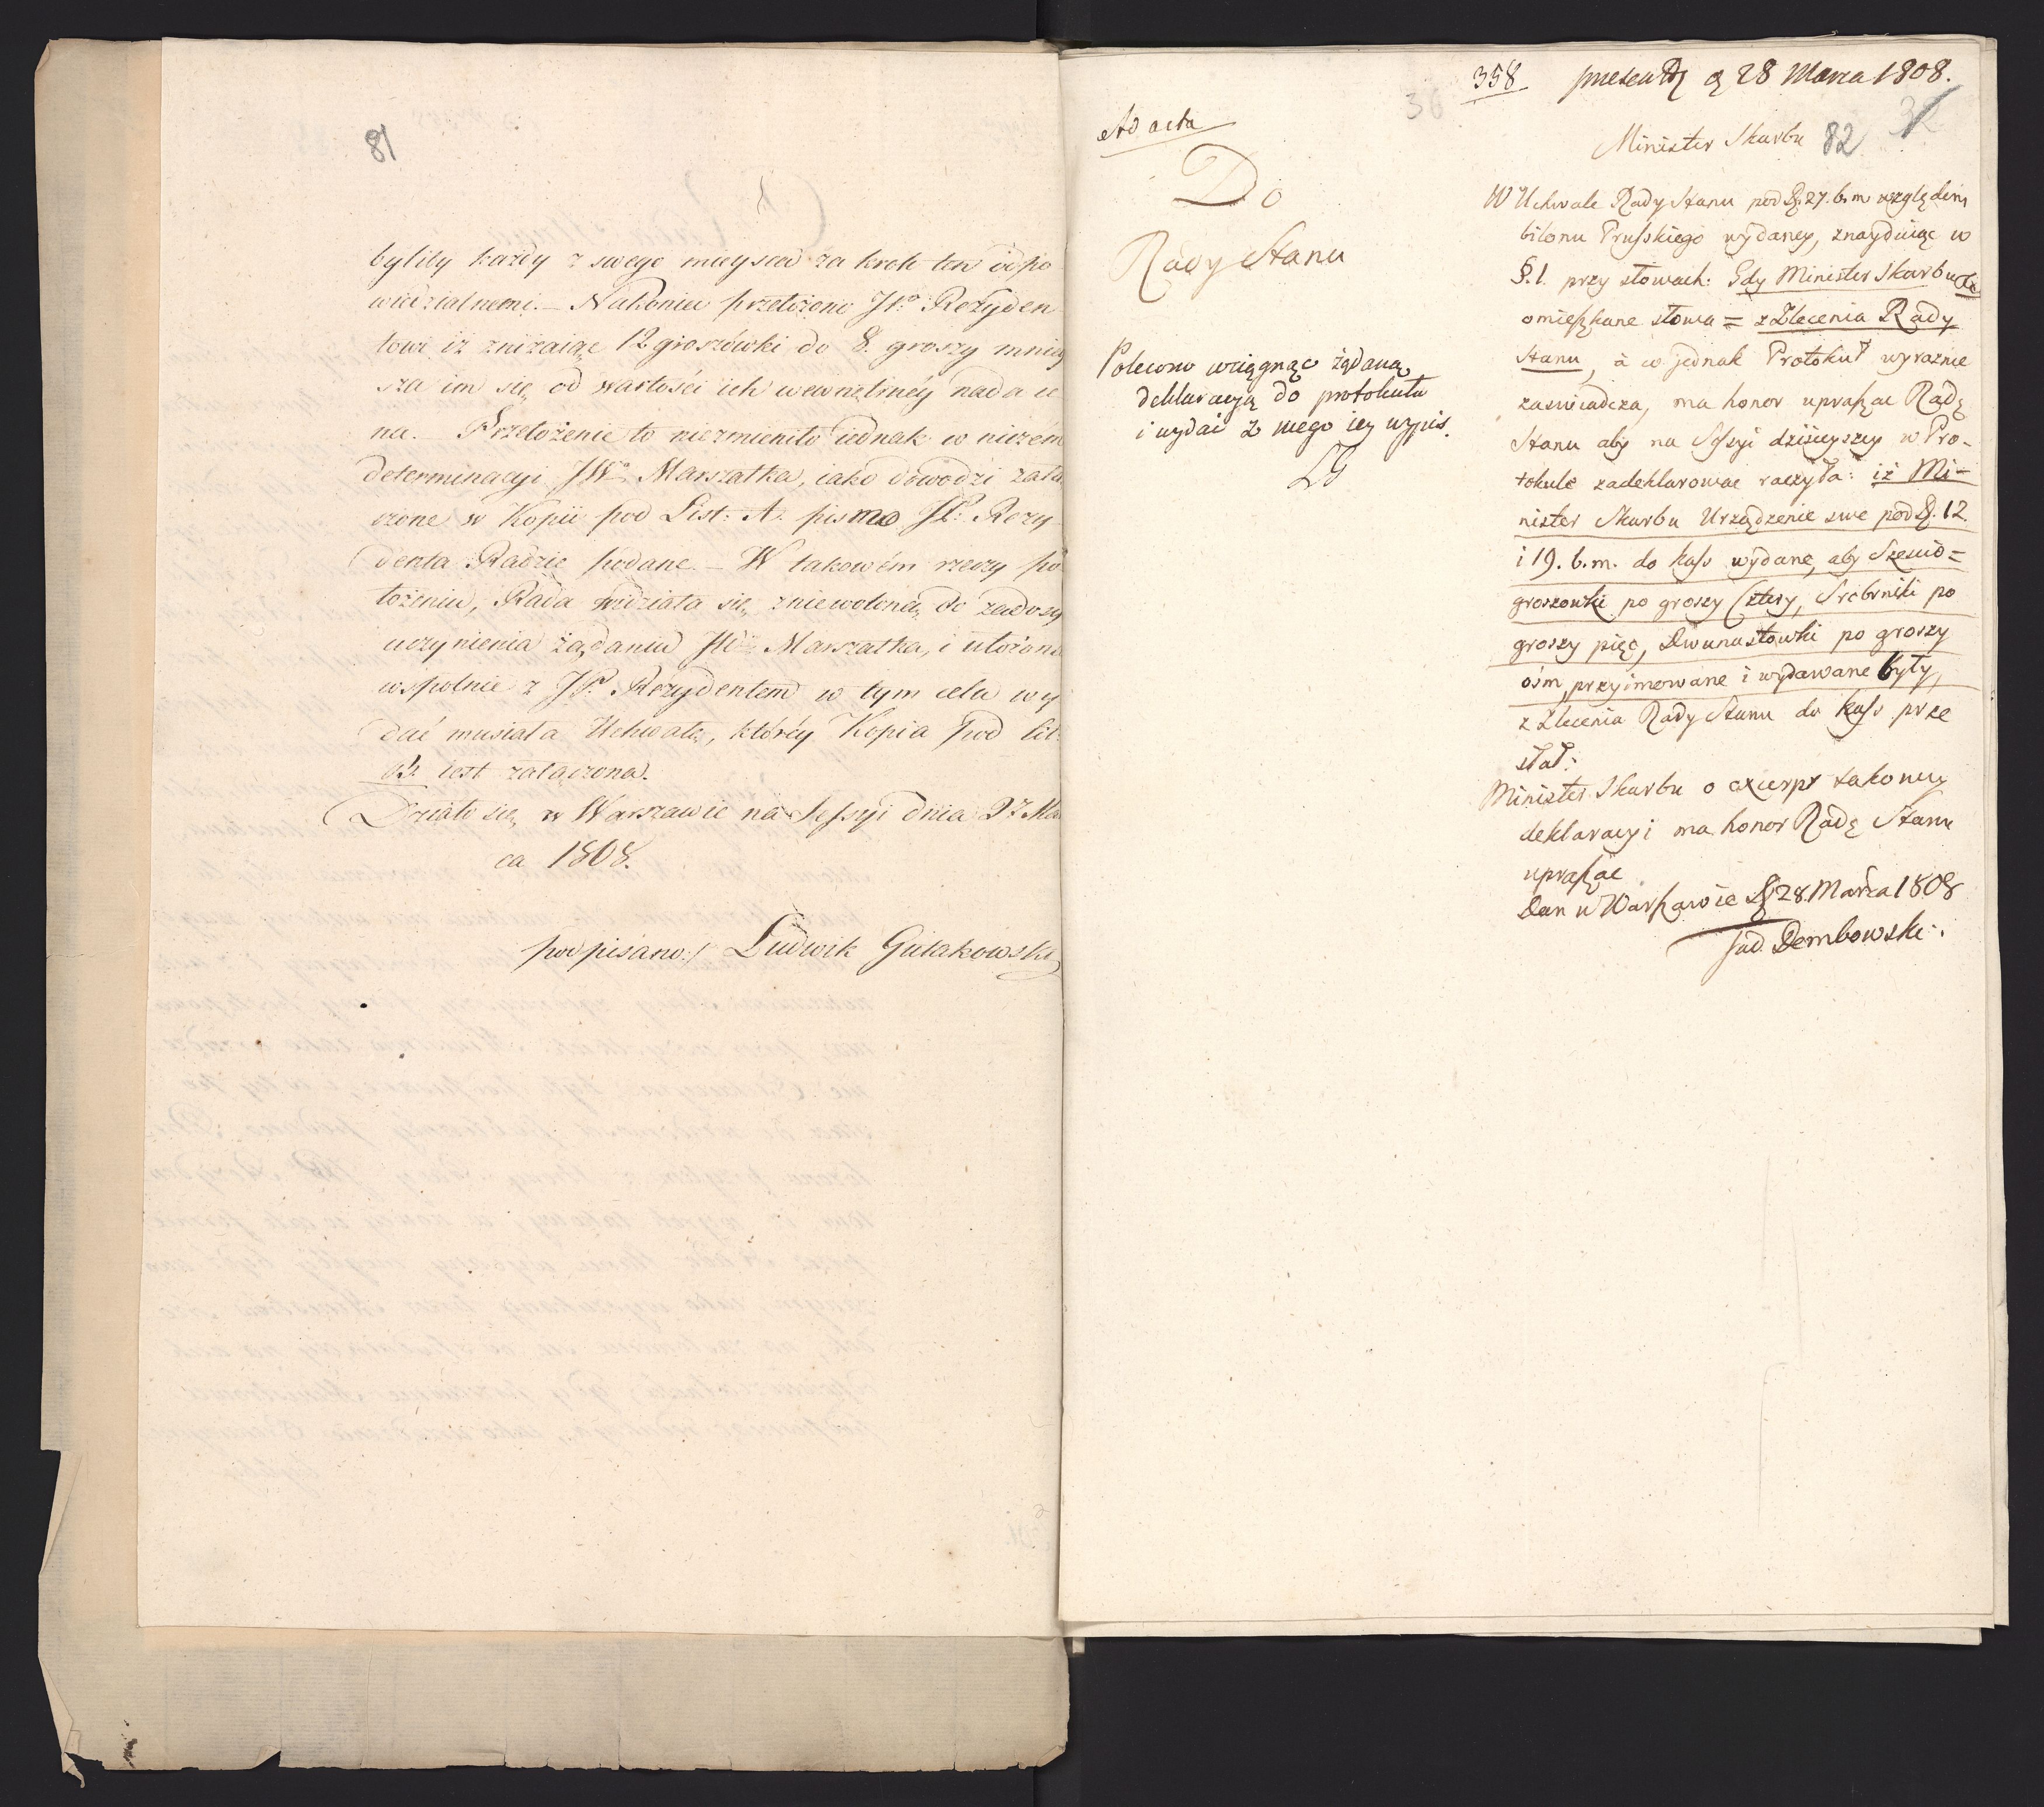 81
byliby każdy z swego mieysca za krok ten odpo
wiedzialnemi. – Nakoniec przełożono JP. Rezyden
towi iż zniżaiąc 12 groszówki do 8. groszy mniey
sza im się od wartości ich wewnętrznéy nada ce
na. – Przełożenie to niezmieniło iednak w niczém
determinacyi JW. Marszałka, iako dowodzi załą
czone w Kopii pod List: A. pismo JP. Rezy
denta Radzie podane. – W takowém rzeczy po
łożeniu, Rada widziała się zniewoloną do zadosyć
uczynienia żądaniu JW. Marszałka, i ułożoną
wspolnie z JP. Rezydentem w tym celu wy
dać musiała Uchwałę, któréy Kopia pod Lit.
B. iest załączona.
Działo się w Warszawie na Sessyi dnia 27 Mar
ca 1808.
podpisano:/ Ludwik Gutakowski
358 28 Marca 1808.
Ad acta
36
32
Minister Skarbu 82
Do
Rady Stanu
Polecono wciągnąć żądaną
deklaracyą do protokułu
i wydać z niego iey wypis.
LG
W Uchwale Rady Stanu pod D. 27. b. m. względem
bilonu Pruskiego wydaney, znayduiąc w
§. 1. przy słowach: Gdy Minister Skarbu &c
omieszkane słowa = z Zlecenia Rady
Stanu, à co jednak Protokuł wyraznie
zaswiadcza, ma honor upraszac Radę
Stanu aby na Sessyi dzisieyszey w Pro-
tokule zadeklarowac raczyła: iż Mi-
nister Skarbu Urządzenie swe pod D. 12.
i 19. b. m. do kass wydane, aby Szescio=
groszowki po groszy Cztery, Srebrniki po
groszy pięc, Dwunastowki po groszy
ośm, przyimowane i wydawane były,
z Zlecenia Rady Stanu do kass prze
słał:
Minister Skarbu o excerpt takowey
deklaracyi ma honor Radę Stanu
upraszac
Dan w Warszawie D. 28. Marca 1808
Dembowski